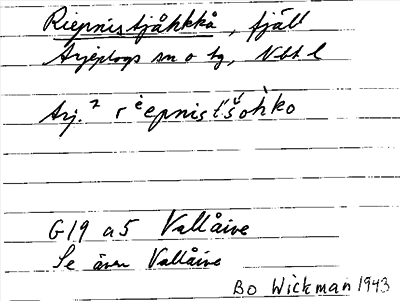 Riepnistjåhkkå, fjäll
Arjeplogs sn o tg, Nbt l
Arj.² rėepnist́š́ohko
G19 a5 Vallåive
Se även Vallåive
Bo Wickman 1943